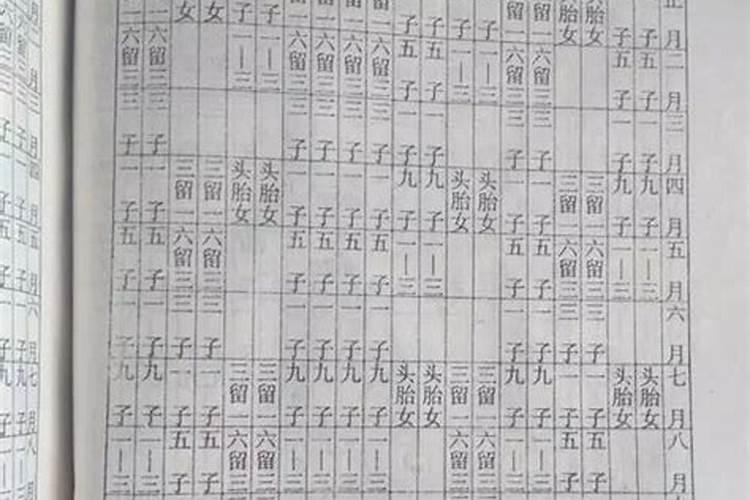 正月 二月 三月 四月 五月 六月 七月 八月
子 五子 一子 九子 一｜三 头胎女
子 五子 一子 九子 一｜三 头胎女
胎女 三留一 六留三 三子 一子 五子
头胎女 三留一 六留三 三子 一子 五子
留一 六留三 三子 一子 五子 一子 九子 一｜三
留一 六留三 三子 一子 五子 一子 九子 一｜三
子 一｜三 头胎女 三留一 六留三
子 一｜三 头胎女 三留一 六留三
子 五子 一子 九子 一｜三 头胎女
子 五子 一子 九子 一｜三 头胎女
留一 六留三 三子 一子 五子 一子 九子 一｜三
一 六留三 三子 一子 五子 一子 九子 一｜三
一 六留三 三子 一子 五子 一子 九子 一｜三
一 六留三 三子 一子 五子 一子 九子 一｜三
子 一｜三 头胎女 三留一 六留三
子 一｜三 头胎女 三留一 六留三
女 三留一 六留三 三子 一子 五子
女 三留一 六留三 三子 一子 五子
一 六留三 三子 一子 五子 一子 九子 一｜三
一 六留三 三子 一子 五子 一子 九子 一｜三